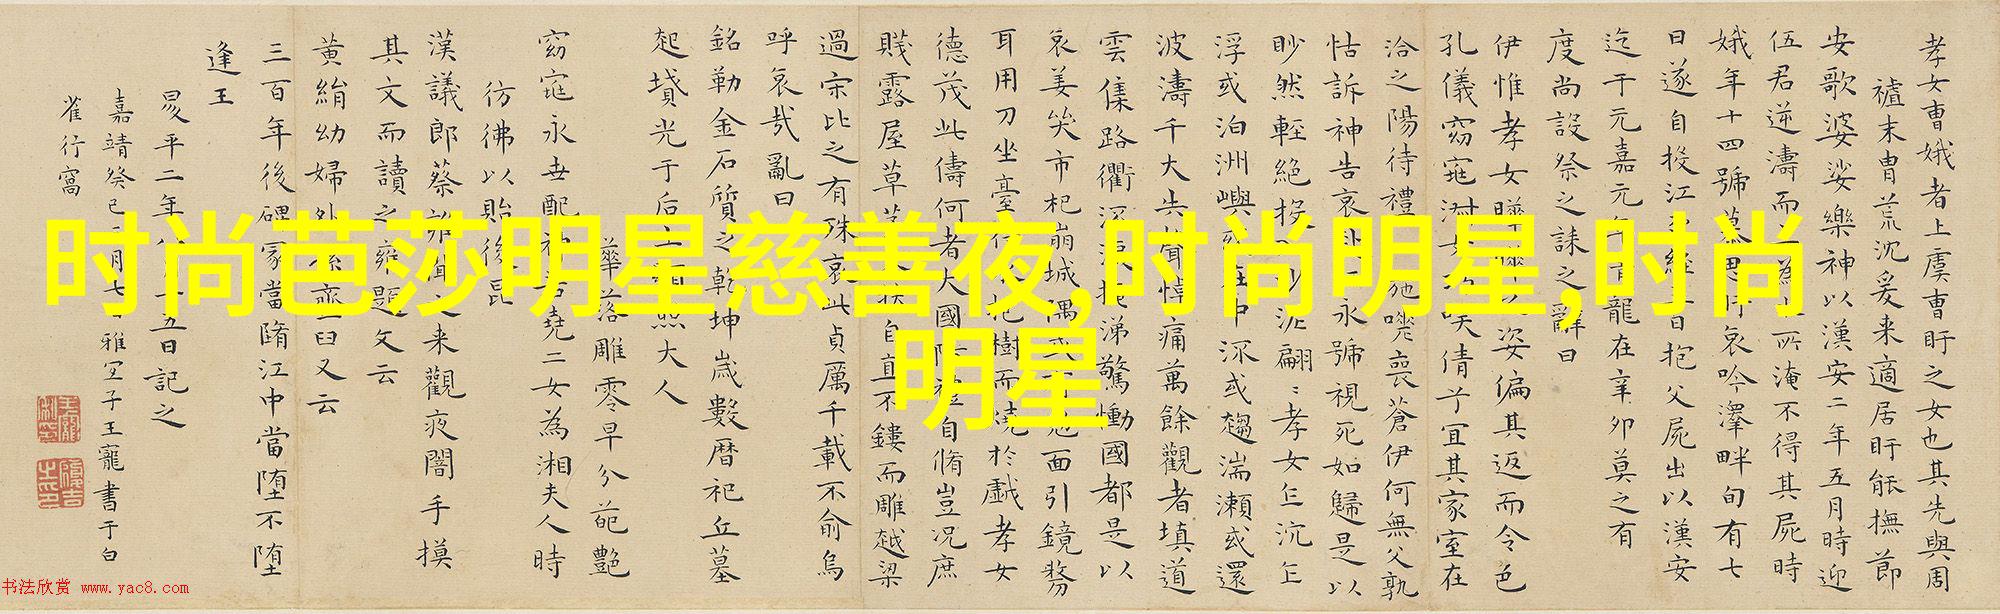 孝女曹娥者上虞曹盱之女也其先與周
禮末胄荒沈爰来適居盱能撫節
安歌婆娑樂神以漢安二年五月時迎
伍君逆濤而為水所淹不得其屍時
娥年十四號慕思盱哀吟澤畔旬有七
日遂自投江經日抱父屍出以漢安
迄于元嘉元年龍在辛卯莫之有
度尚設祭之誄之辭曰
伊惟孝女曄曄之姿偏其返而令色
孔儀窈窕淑女笑倩兮宜其家室在
洽之陽待禮施嗟喪蒼伊何無父孰
怙訴神告哀赴永號視死如歸是以
眇然輕絕投沙泥翩〻孝女乍沉乍
浮或泊洲嶼或在中流或趨湍瀨或還
波濤千夫失聲悼痛萬餘觀者填道
雲集路衢涕驚慟國都是以
哀姜哭市杞崩城隅或面引鏡剺
耳用刀坐臺待水抱樹而燒於戲孝女
德茂此儔何者大國防禮自脩豈況庶
賤露屋草茅扶自直不鏤而雕越梁
過宋比之有殊哀此貞厲千載不俞烏
呼哀哉亂曰
銘勒金石質之乾坤歲數曆祀丘墓
起墳光于后土顯照夫人
華落雕零早分葩艷
窈窕永世配神若堯二女為湘夫人時
彷彿以貽後昆
漢議郎蔡雍聞之来觀夜闇手摸
其文而讀之雍題文云
黃絹幼婦外孫齏臼又云
三百年後碑冢當墮江中當墮不墮
逢王
昇平二年八月十五日記之
嘉靖癸巳月七雅宜子王寵書于白
雀行窩
时尚芭莎明星慈善夜,时尚明星,时尚
明星
书法欣赏 www.yac8.com